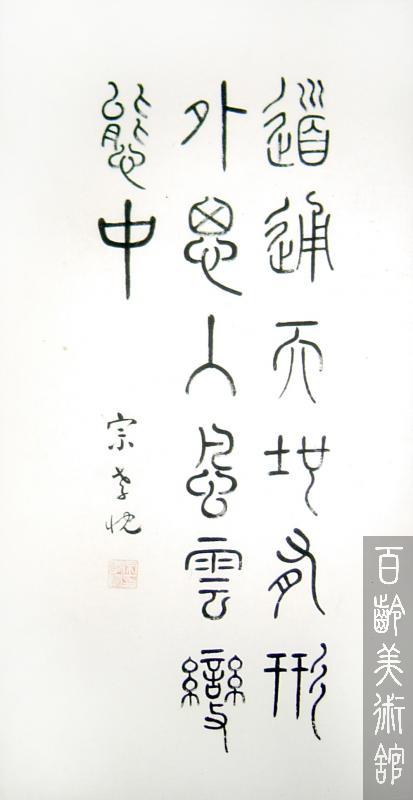 道通天地有形
外思入風雲變
態中
宗孝忱
百齡美術館